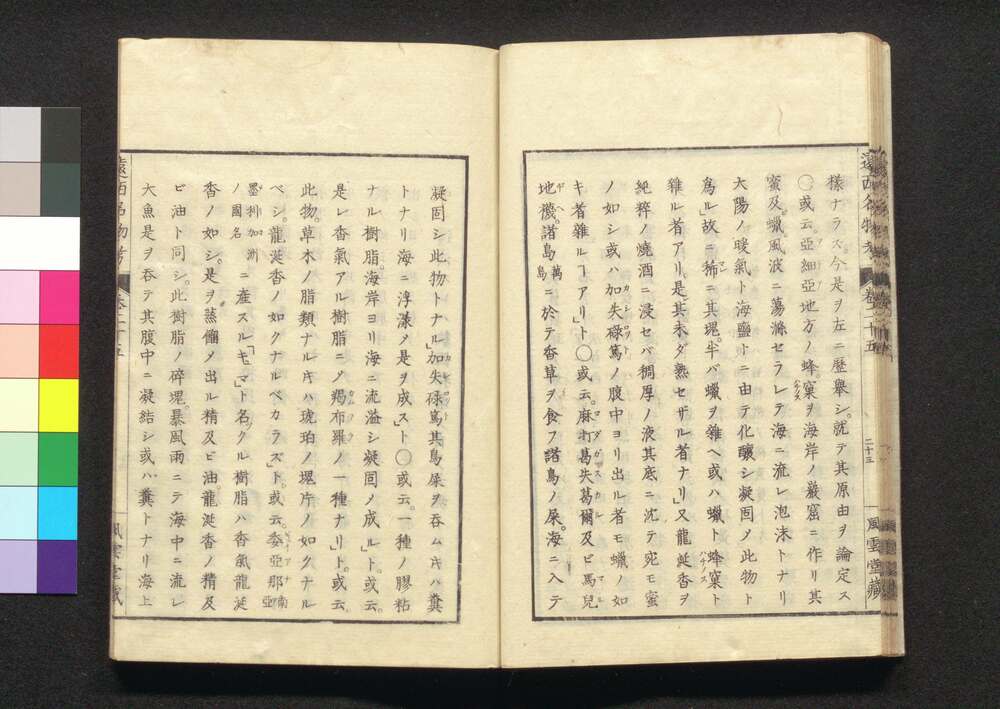 遠西名物考 巻二十五 二十三 風雲堂藏
樣ナラス。今是ヲ左ニ歷舉シ。就テ其原由ヲ論定ス
〇或云。亞細亞地方ノ蜂窠ヲ海岸ノ巖窟ニ作リ其
蜜及蠟風波ニ蕩滌セラレテ海ニ流レ泡沫トナリ
大陽ノ暖氣ト海鹽トニ由テ化釀シ凝固ノ此物ト
爲ル」故ニ稀ニ其塊。半バ蠟ヲ雜ヘ或ハ蠟ト蜂窠ト
雜ル者アリ是其未ダ熟セザル者ナリ」又龍涎香ヲ
純粹ノ燒酒ニ浸セバ稠厚ノ液其底ニ沈テ宛モ蜜
ノ如シ或ハ加失碌篤ノ腹中ヨリ出ル者モ蠟ノ如
キ者雜ルヿアリ」ト〇或云。麻打葛失葛爾及ビ馬兒
地襪。諸島萬島ニ於テ香草ヲ食フ諸鳥ノ屎。海ニ入テ
凝固シ此物トナル」加失碌篤其鳥屎ヲ吞ムキハ糞
トナリ海ニ浮漾ノ是ヲ成ス」ト〇或云。一種ノ膠粘
ナル樹脂。海岸ヨリ海ニ流溢シ凝固ノ成ル」ト。或云。
是レ香氣アル樹脂ニノ羯布羅ノ一種ナリ」ト。或云
此物。草木ノ脂類ナルキハ琥珀ノ塊片ノ如クナル
ベシ。龍涎香ノ如クナルベカラズ」ト。或云。委亞那南亞
墨利加洲ノ國名ニ產スル「キマ」ト名クル樹脂ハ香氣龍涎
香ノ如シ。是ヲ蒸餾ノ出ル精及ビ油。龍涎香ノ精及
ビ油ト同シ。此樹脂ノ碎塊。暴風雨ニテ海中ニ流レ
大魚是ヲ吞テ其腹中ニ凝結シ或ハ糞トナリ海上
遠西名物考